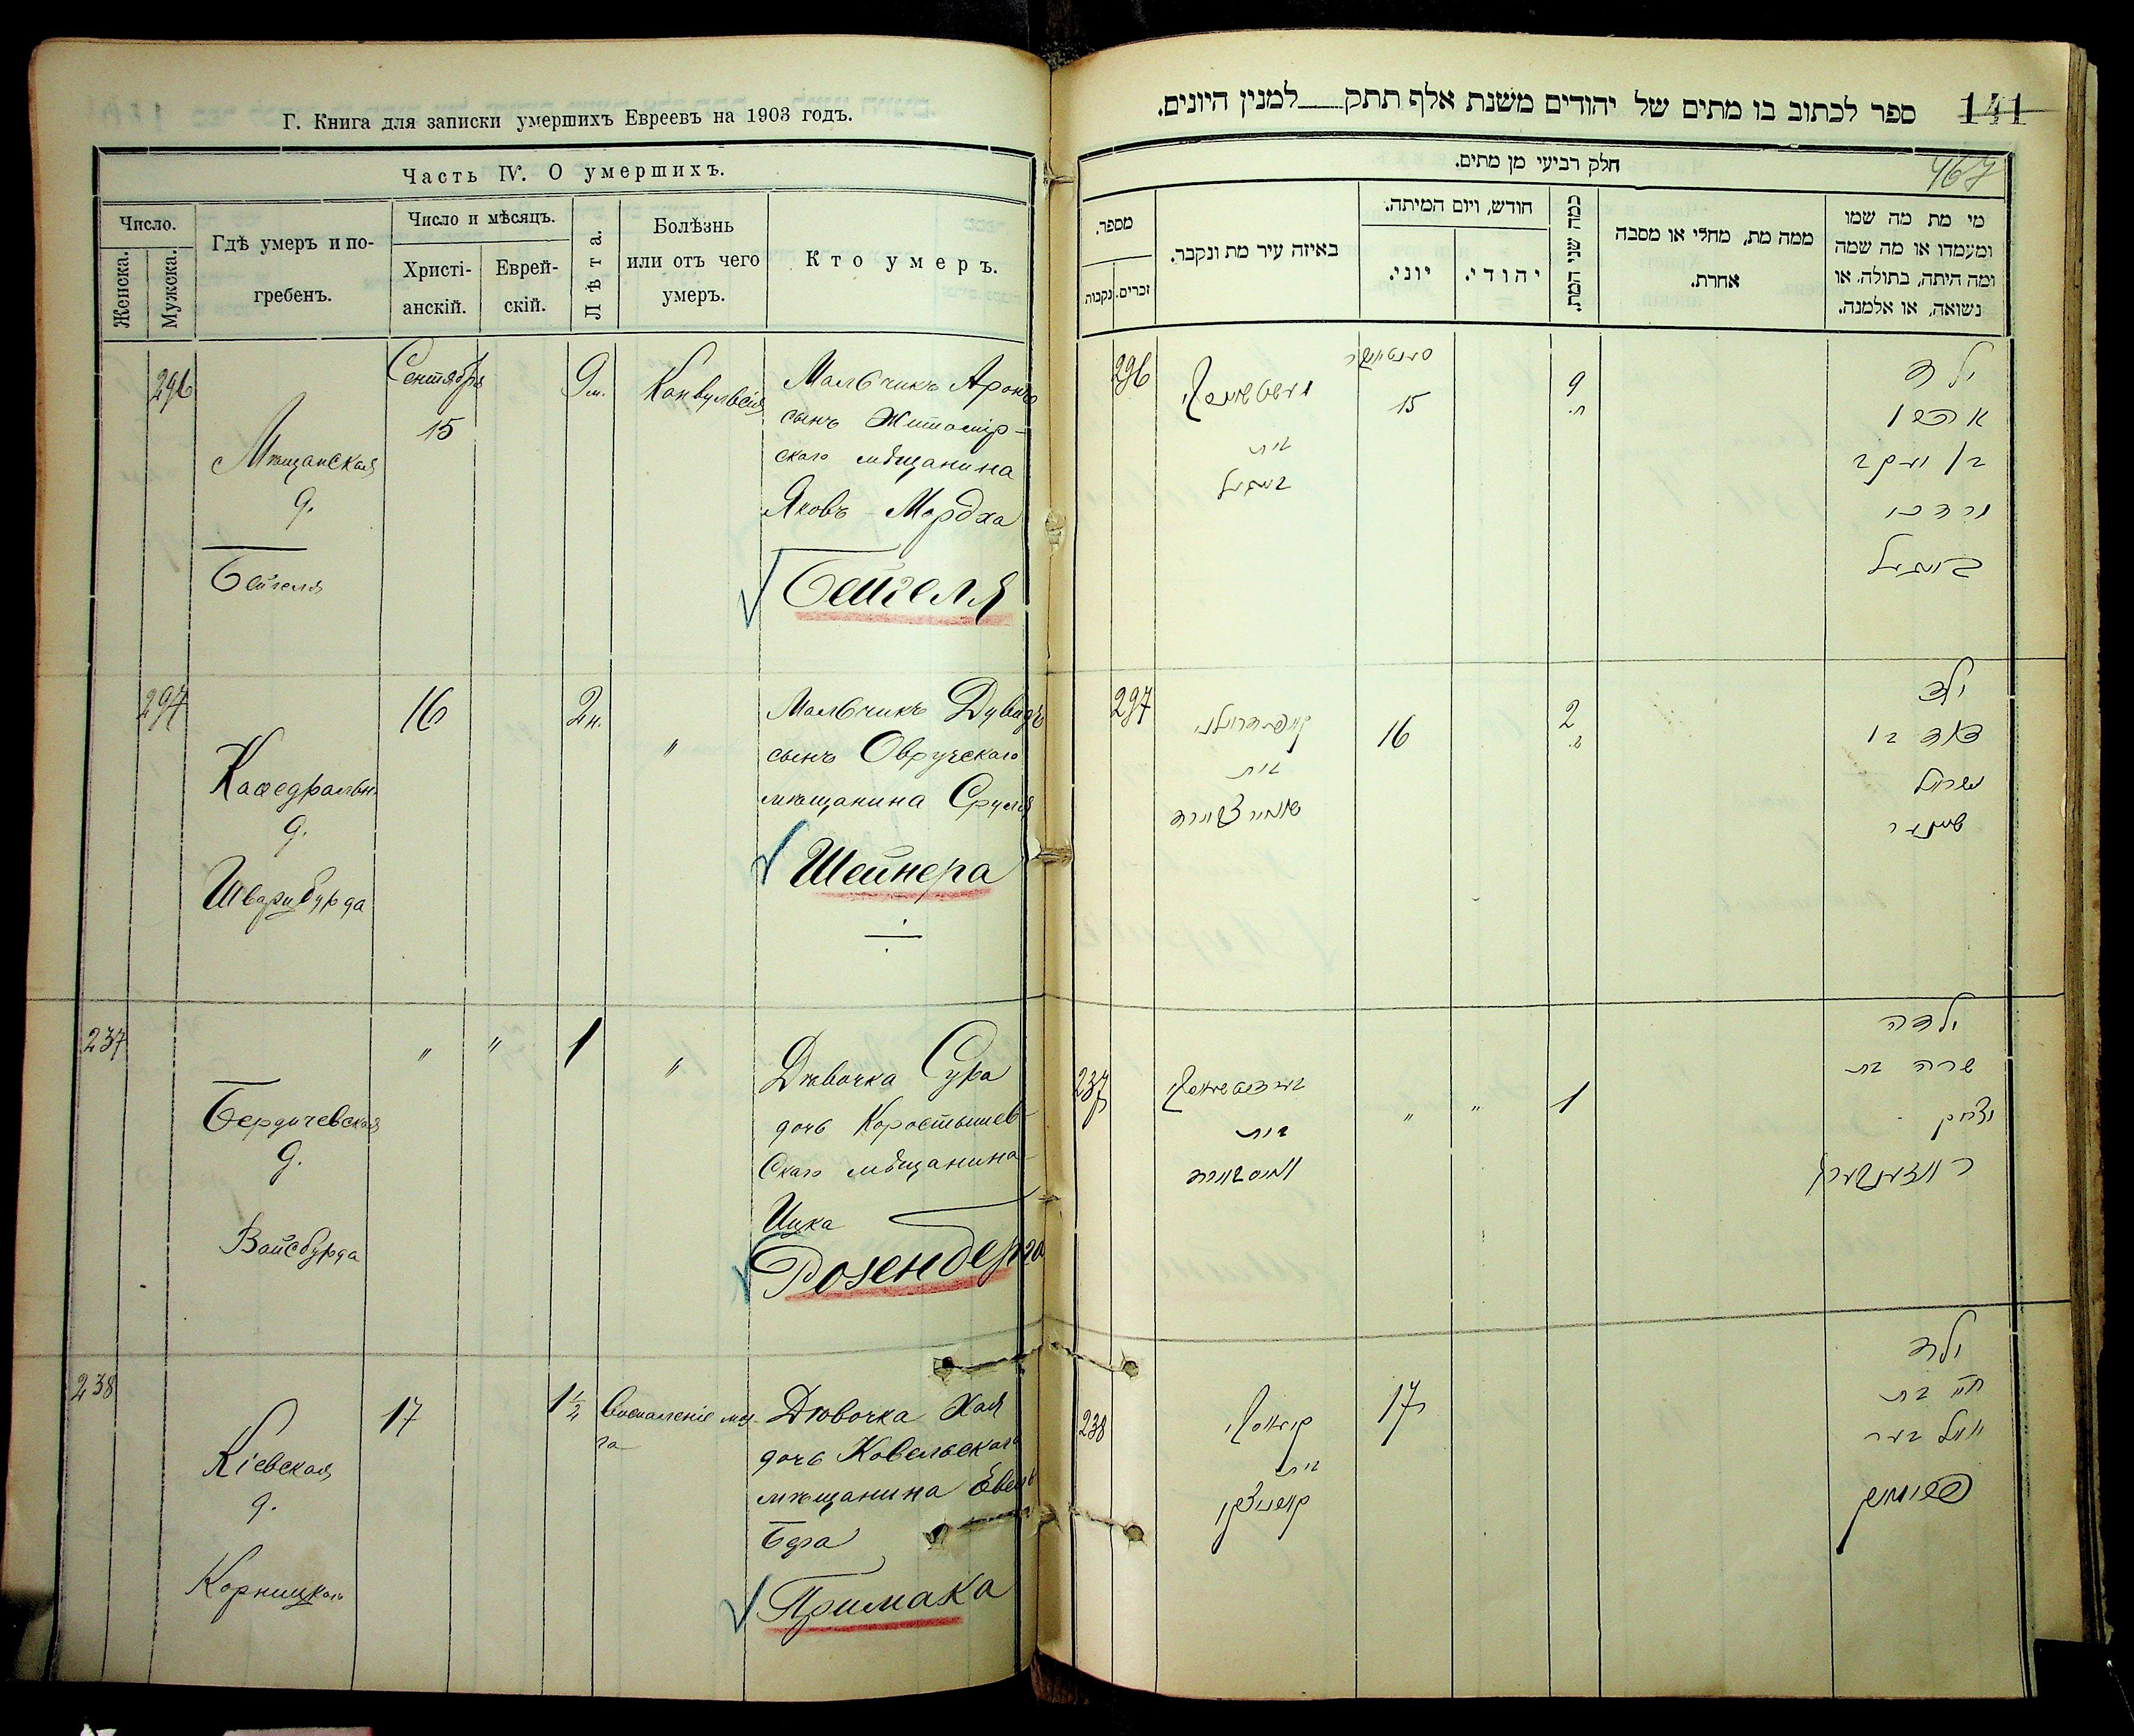 Г. Книга для записки умершихъ Евреевъ на 1903 годъ.
Часть IV. О умершихъ.
Число.
Женска.
Мужска.
Гдѣ умеръ и по-
гребенъ.
Число и мѣсяцъ.
Христі-
анскій.
Еврей-
скій.
Лѣта.
Болѣзнь
или отъ чего
умеръ.
Кто умеръ.
296
Мѣщанская
д.
Бейгеля
Сентября
15
9 м.
Конвульсія
Мальчикъ Аронъ
сынъ Житомір-
скаго мѣщанина
Яковъ-Мордха
Бейгеля
297
Каѳедральн.
д.
Шварцбурда
16
2 н.
"
Мальчикъ Дувидъ
сынъ Овручскаго
мѣщанина Сруля
Шейнера
237
Бердичевская
д.
Вайсбурда
"
"
1
"
Дѣвочка Сура
дочь Коростышев-
скаго мѣщанина
Ицка
Розенберга
238
Кіевская
д.
Корницкаго
17
1 1/2
Воспаленіе моз-
га
Дѣвочка Хая
дочь Ковельскаго
мѣщанина
Бера
Примака
ספר לכתוב בו מתים של יהודים משנת אלף תתק למנין היונים.
141
467
חלק רביעי מן מתים.
מספר.
זכרים.
נקבות
באיזה עיר מת ונקבר.
חודש, ויום המיתה.
יוני.
יהודי.
כמה שני המת.
ממה מת, מחלי או מסבה
אחרת.
מי מת מה שמו
ומעמדו או מה שמה
ומה היתה, בתולה, או
נשואה, או אלמנה.
296
בית
בייגיל
15
9
ח.
ילד
אהרן
בן יעקב
מרדכי
בייגיל
297
בית
16
2
ילד
דוד בן
ישראל
שיינער
237
בית
"
"
1
ילדה
שרה בת
יצחק
ראזענבערג
238
בית
17
ילדה
חי' בת